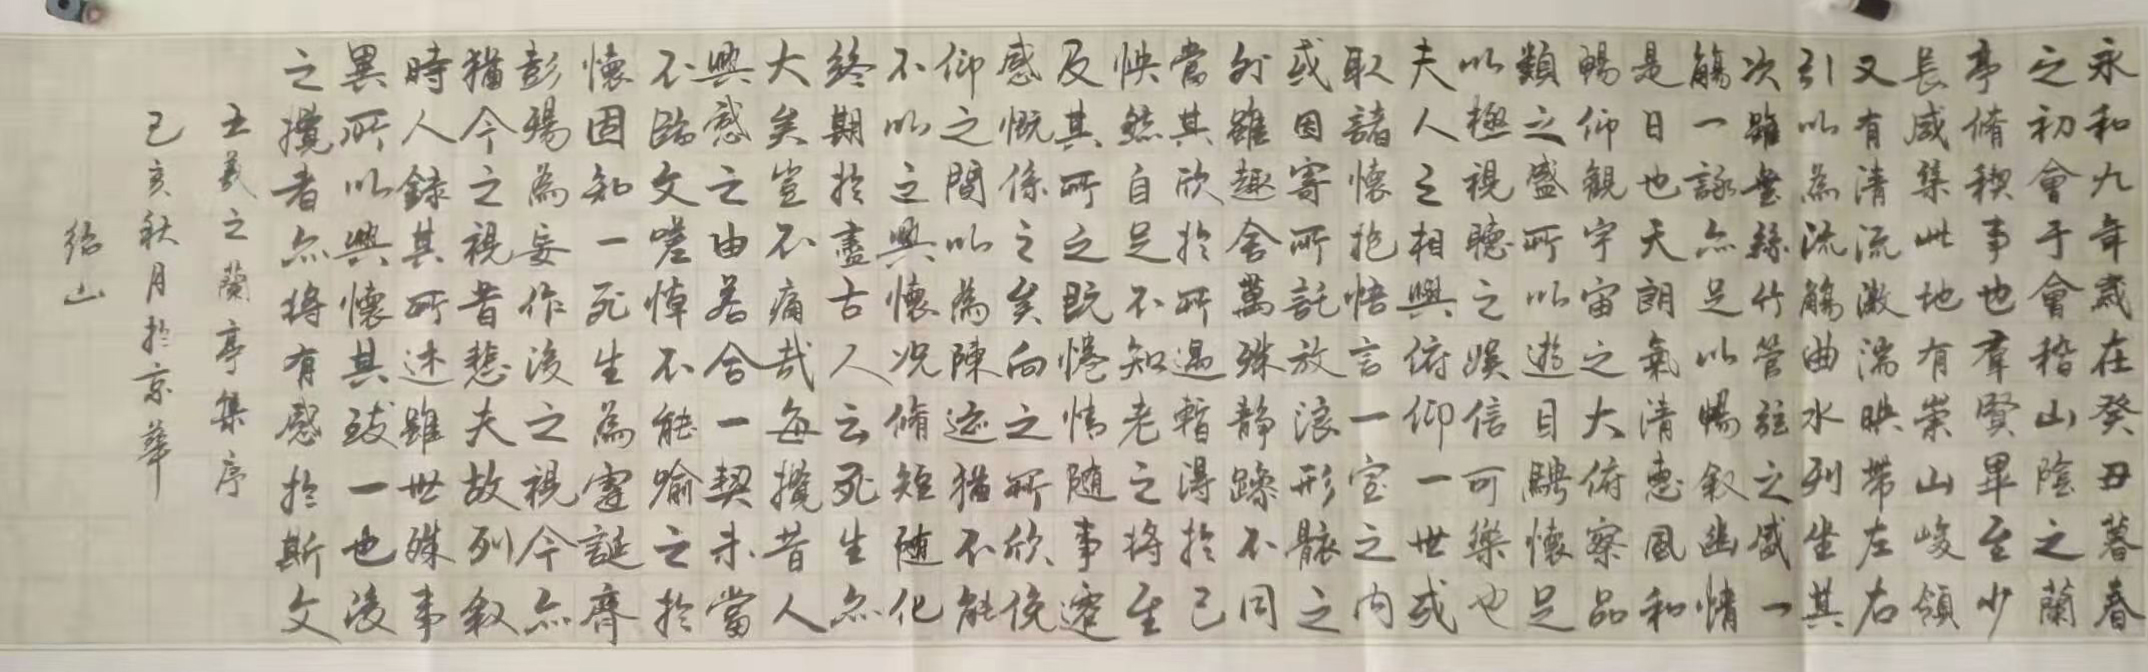 永和九年歲在癸丑暮春
之初會于會稽山陰之蘭
亭脩稧事也羣賢畢至少
長咸集此地有崇山峻領
又有清流激湍映帶左右
引以為流觴曲水列坐其
次雖無絲竹管弦之盛一
觴一詠亦足以暢叙幽情
是日也天朗氣清惠風和
暢仰觀宇宙之大俯察品
類之盛所以遊目騁懷足
以極視聽之娛信可樂也
夫人之相與俯仰一世或
取諸懷抱悟言一室之內
或因寄所託放浪形骸之
外雖趣舍萬殊靜躁不同
當其欣於所遇暫得於己
怏然自足不知老之將至
及其所之既惓情隨事遷
感慨係之矣向之所欣俛
仰之間以為陳迹猶不能
不以之興懷況脩短隨化
終期於盡古人云死生亦
大矣豈不痛哉每攬昔人
興感之由若合一契未嘗
不臨文嗟悼不能喻之於
懷固知一死生為虛誕齊
彭殤為妄作後之視今亦
猶今之視昔悲夫故列叙
時人錄其所述雖世殊事
異所以興懷其致一也後
之攬者亦將有感於斯文
王羲之蘭亭集序
己亥秋月於京華
紹山